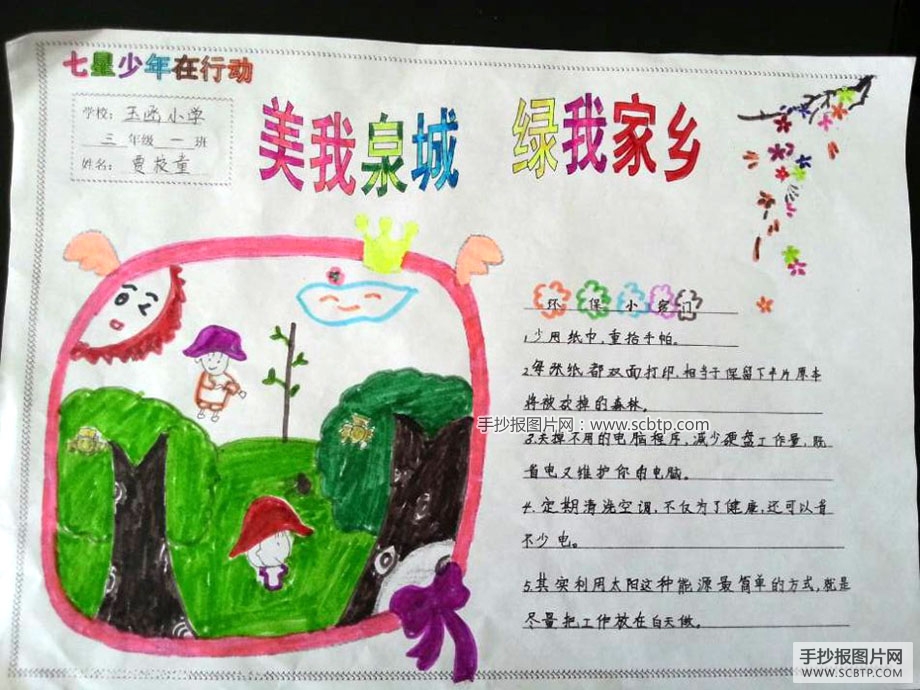 七星少年在行动
学校: 玉函小学
三 年级 一 班
姓名: 贾 童
美我泉城 绿我家乡
环保小窍门
1.少用纸巾,重拾手帕。
2.每张纸都双面打印,相当于保留下半片原本
将被砍掉的森林。
手抄报图片网:www.scbtp.com
3.关掉不用的电脑程序,减少硬盘工作量,既
省电又维护你的电脑。
4.定期清洗空调,不仅为了健康,还可以省
不少电。
5.其实利用太阳这种能源最简单的方式,就是
尽量把工作放在白天做。
手抄报图片网
WWW.SCBTP.COM